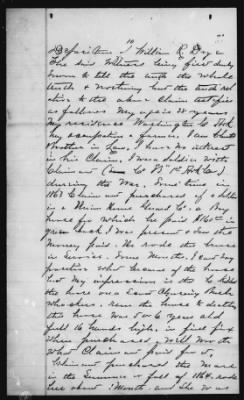 Deposition of William R. Dye
The said Witness being first duly
sworn to tell the truth the whole
truth & nothing but the truth rel
ative to the above Claim testifies
as follows. My age is 22 years
My residence Washington Co Ark
My occupation a farmer. I am Clmts
Brother in Law. I have no interest
in his Claim. I was a Soldier with
Claimant (Co B 1st Ark Cav)
during the War. Some time in
1863 Claimant purchased of a Soldier
in a Union Home Guard Co. a Bay
horse for which he paid $160.00 in
green back I was present & saw the
Money paid. He rode the horse
in Service Some Months. I can't say
positive what became of the horse
but My impression is he killed
the horse on a Scout Chasing Bush
whackers. Run the horse to death
this horse was 5 or 6 years old
full 16 hands high, in first fix
when purchased, well worth
what Claimant paid for it.
Claimant purchased the Mare
in the Summer or fall of 1864. rode
her about Month and She was